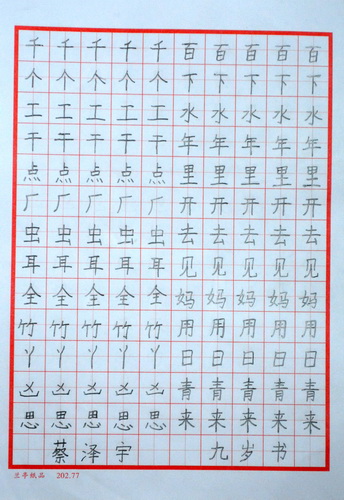 千千千千千百百百百百
个个个个个下下下下下
工工工工工水水水水水
干干干干干年年年年年
点点点点点里里里里里
厂厂厂厂厂开开开开开
虫虫虫虫虫去去去去去
耳耳耳耳耳见见见见见
全全全全全妈妈妈妈妈
竹竹竹竹竹用用用用用
丫丫丫丫丫日日日日日
凶凶凶凶凶青青青青青
思思思思思来来来来来
蔡泽宇 九岁书
兰亭纸品 202.77